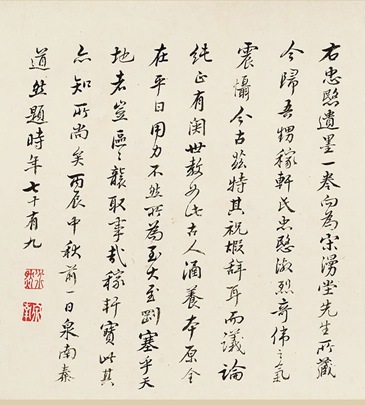 右忠愍遺墨一卷向為宋漫堂先生所藏
今歸吾甥稼軒氏忠愍激烈奇偉之氣
震懾今古茲特其祝嘏辭耳而議論
純正有関世教如此古人涵養本原全
在平日用力不然所為至大至剛塞乎天
地者豈區々襲取事哉稼軒寶此其
亦知所尚矣丙辰中秋前一日泉南秦
道然題時年七十有九